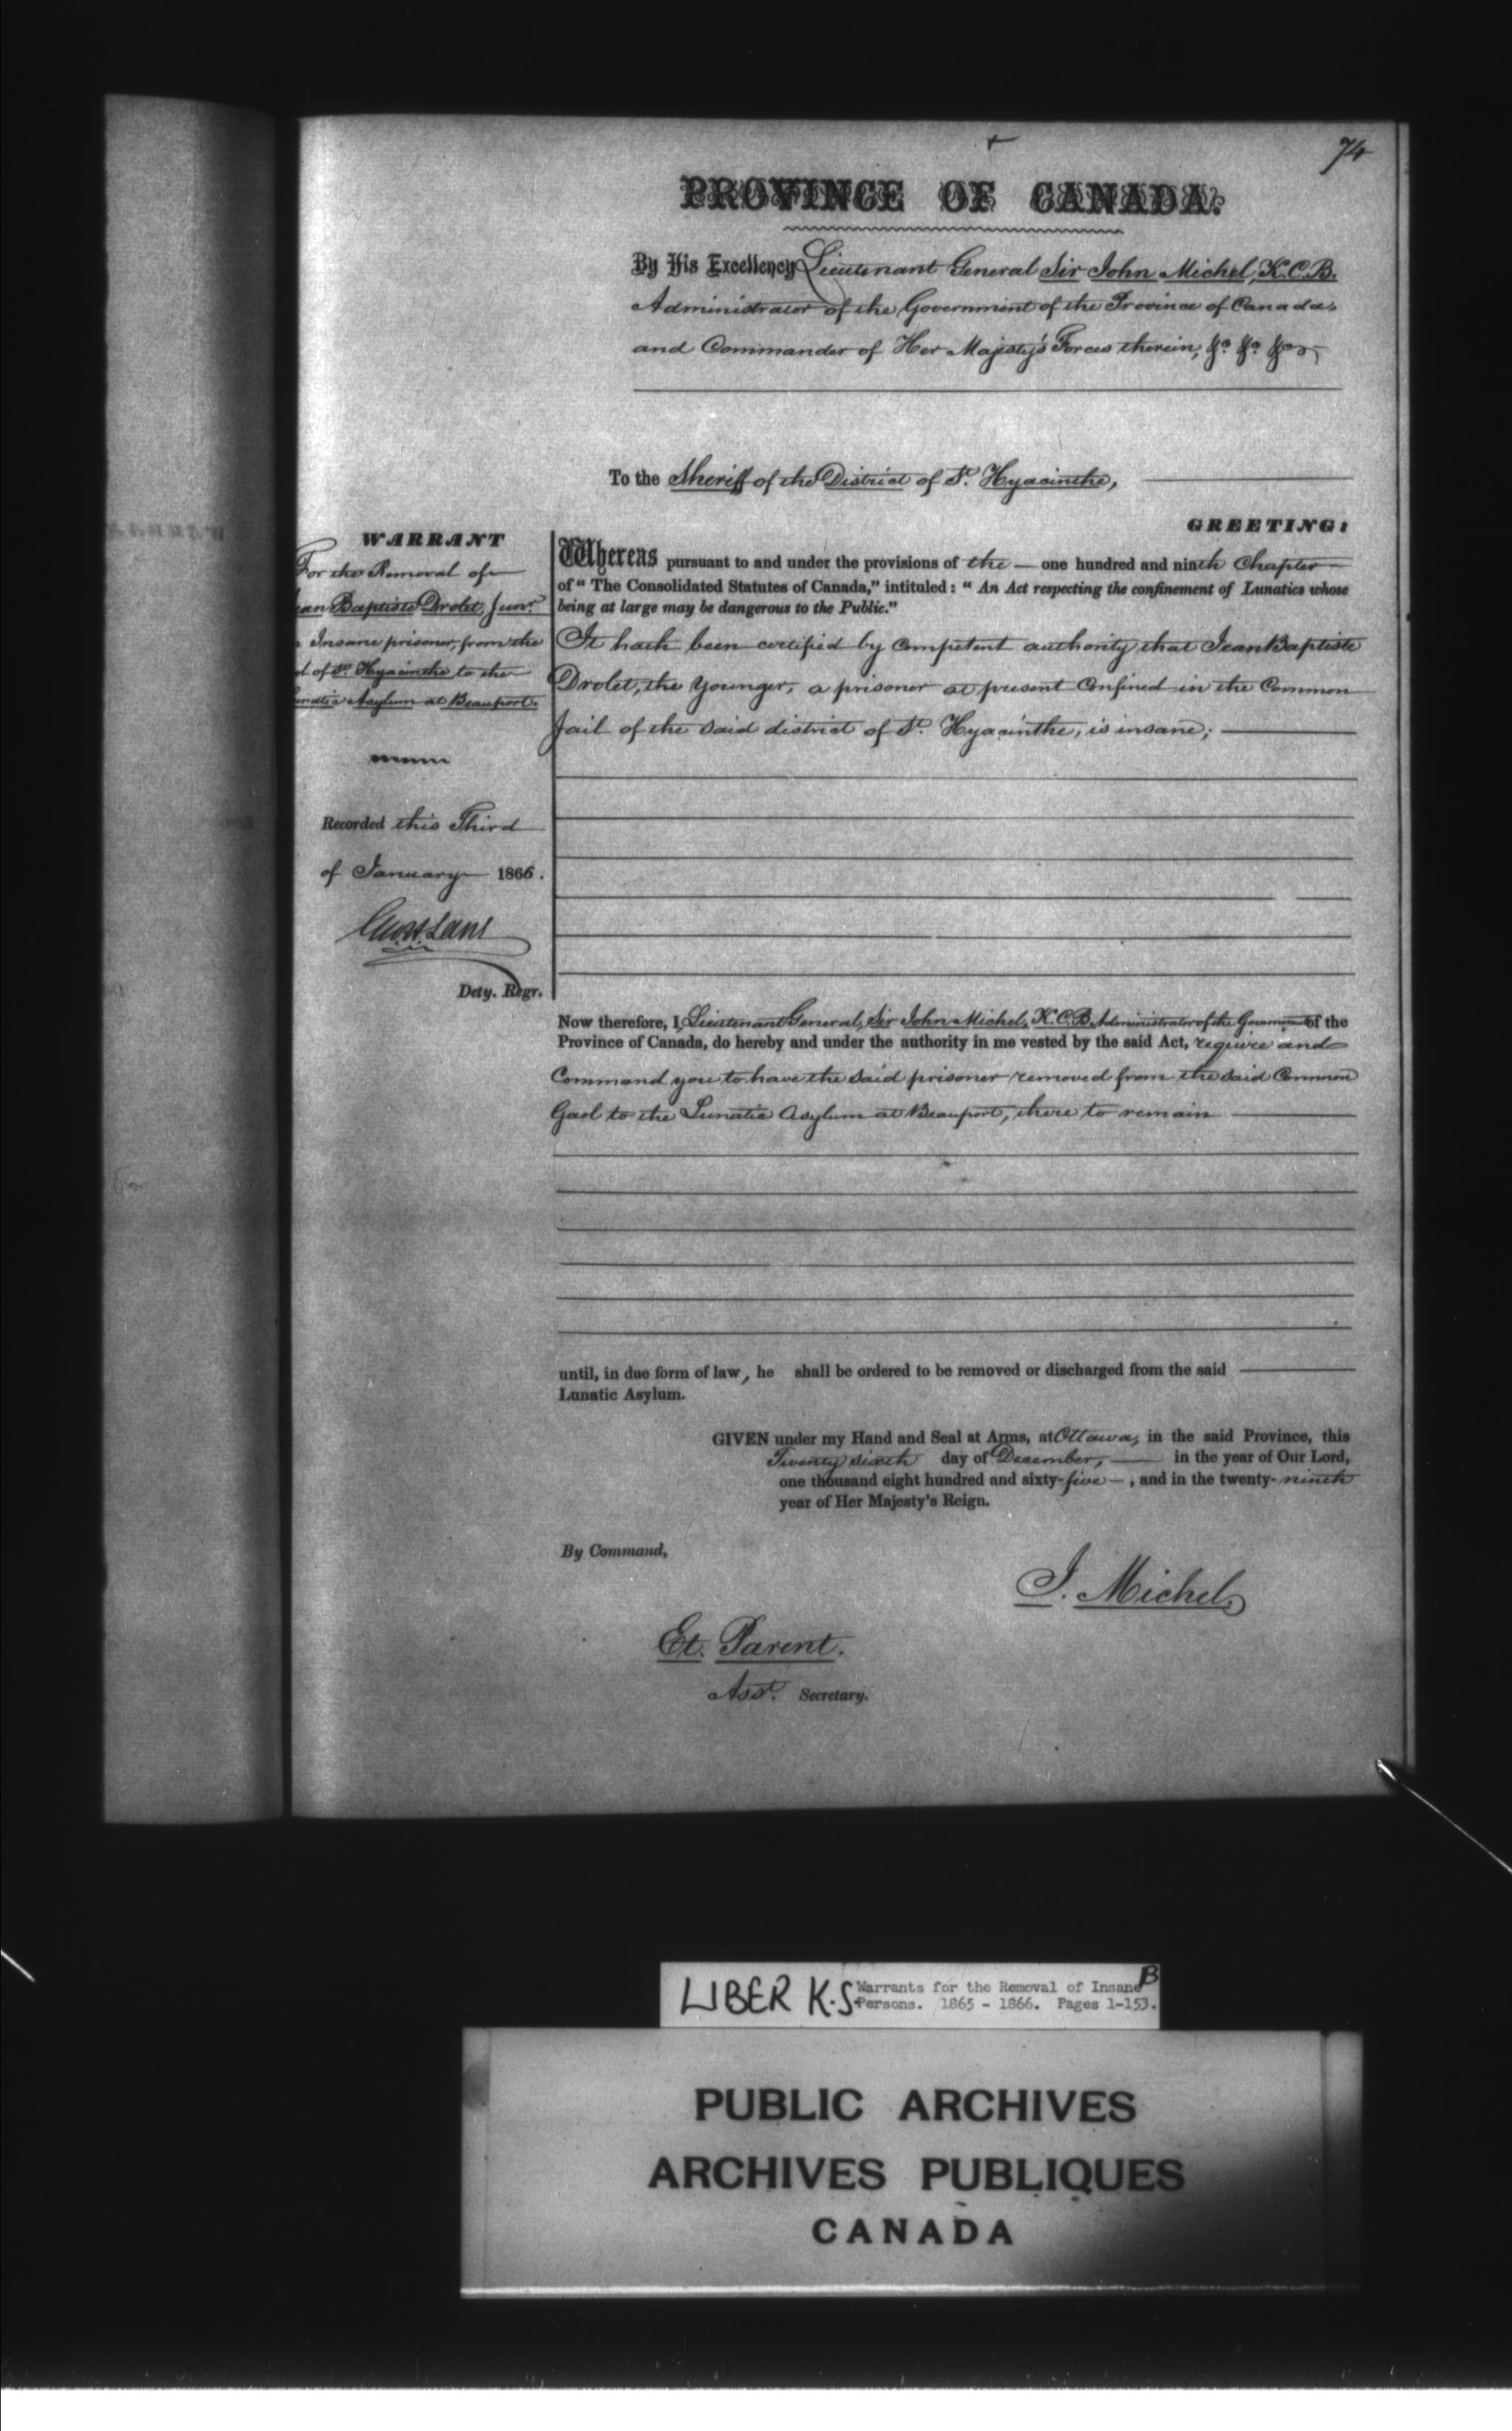 74
PROVINCE OF CANADA.
By His Excellency Lieutenant General Sir John Michel, K.C.B.
Administrator of the Government of the Province of Canada,
and Commander of Her Majesty's Forces therein, &c &c &c
To the Sheriff of the District of St. Hyacinthe,
GREETING:
WARRANT
For the Removal of
ean Baptiste Drolet, Junr.
n Insane prisoner, from the
ol of St. Hyacinthe to the
unatic Asylum at Beauport.
Recorded this Third
of January 1866.
Dety. Regr.
Whereas pursuant to and under the provisions of the — one hundred and ninth Chapter
of "The Consolidated Statutes of Canada," intituled: "An Act respecting the confinement of Lunatics whose
being at large may be dangerous to the Public."
It hath been certified by competent authority that Jean Baptiste
Drolet, the Younger, a prisoner at present Confined in the Common
Jail of the said district of St. Hyacinthe, is insane;
Now therefore, I, Lieutenant General, Sir John Michel, K.C.B. Administrator of the Government of the
Province of Canada, do hereby and under the authority in me vested by the said Act, require and
Command you to have the said prisoner removed from the said Common
Gaol to the Lunatic Asylum at Beauport, there to remain
until, in due form of law, he shall be ordered to be removed or discharged from the said
Lunatic Asylum.
GIVEN under my Hand and Seal at Arms, at Ottawa, in the said Province, this
Twenty sixth day of December, in the year of Our Lord,
one thousand eight hundred and sixty-five —, and in the twenty-ninth
year of Her Majesty's Reign.
By Command,
J. Michel.
Et. Parent.
Asst. Secretary.
LIBER K.S. Warrants for the Removal of Insane B
Persons. 1865 - 1866. Pages 1-153.
PUBLIC ARCHIVES
ARCHIVES PUBLIQUES
CANADA